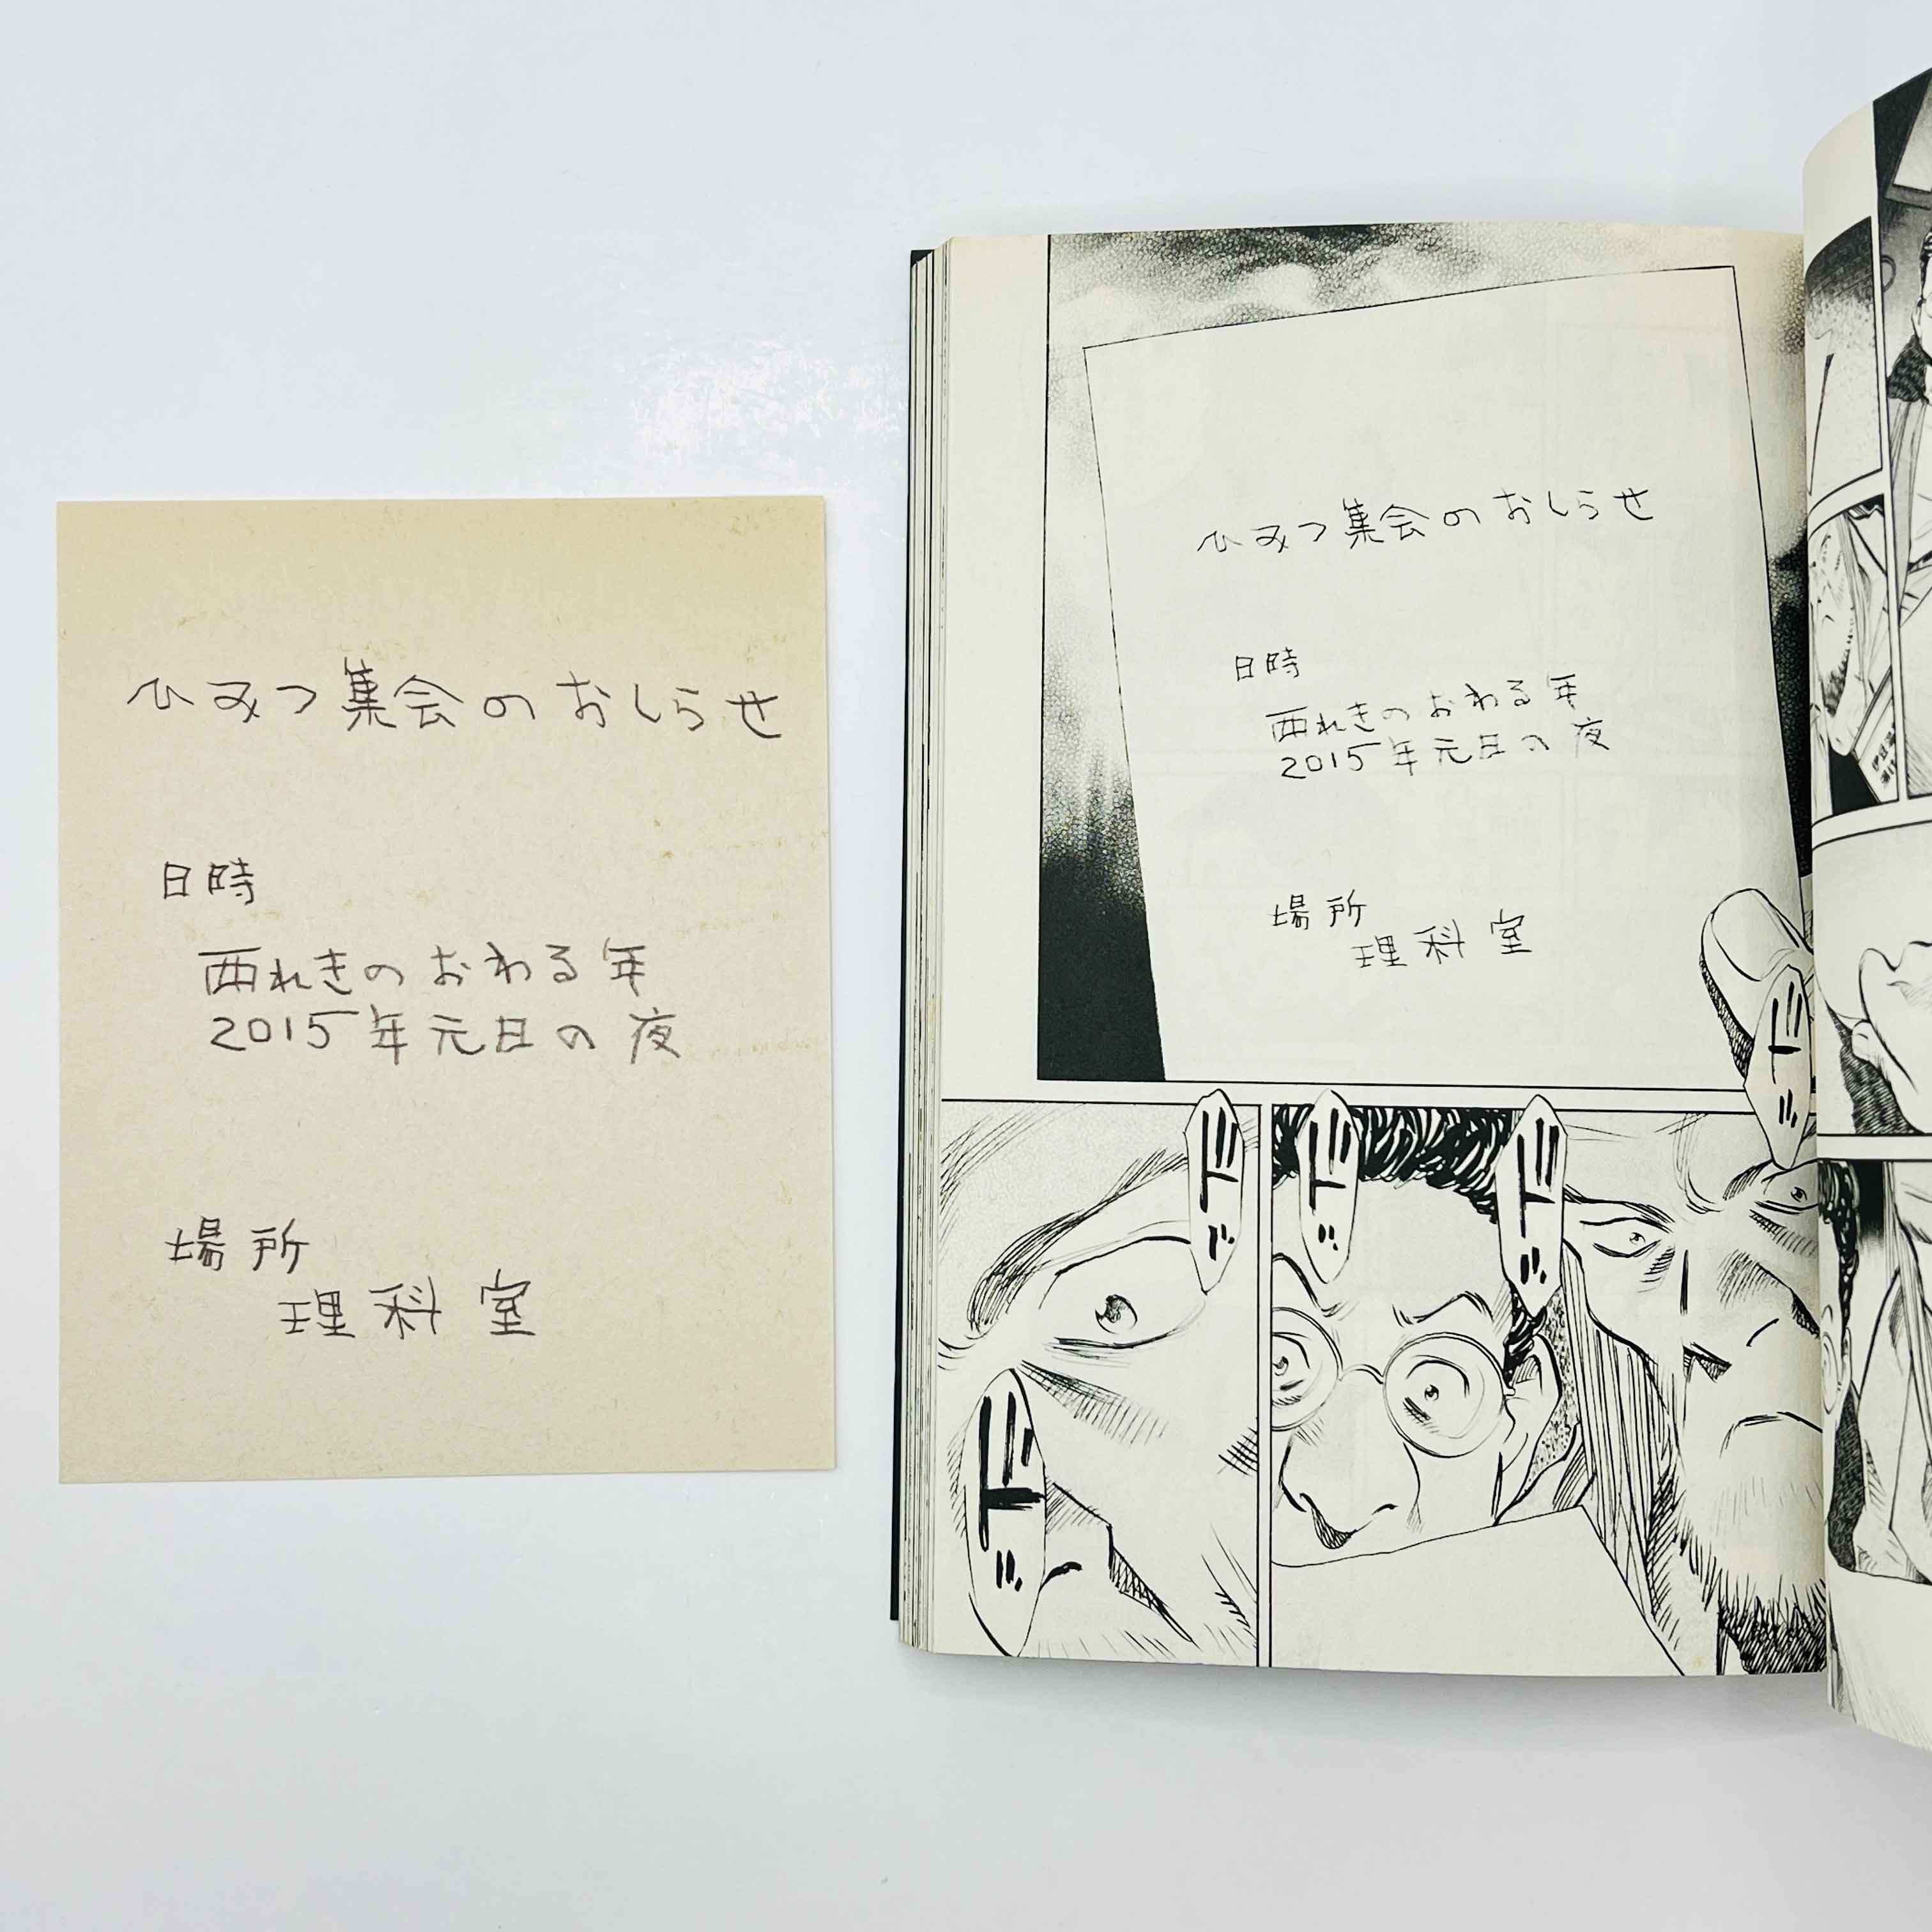 ひみつ集会のおしらせ
日時
西れきのおわる年
2015年元日の夜
場所
理科室
ひみつ集会のおしらせ
日時
西れきのおわる年
2015年元日の夜
場所
理科室
ドッ
ドッ
ドッ
ドッ
ドッ